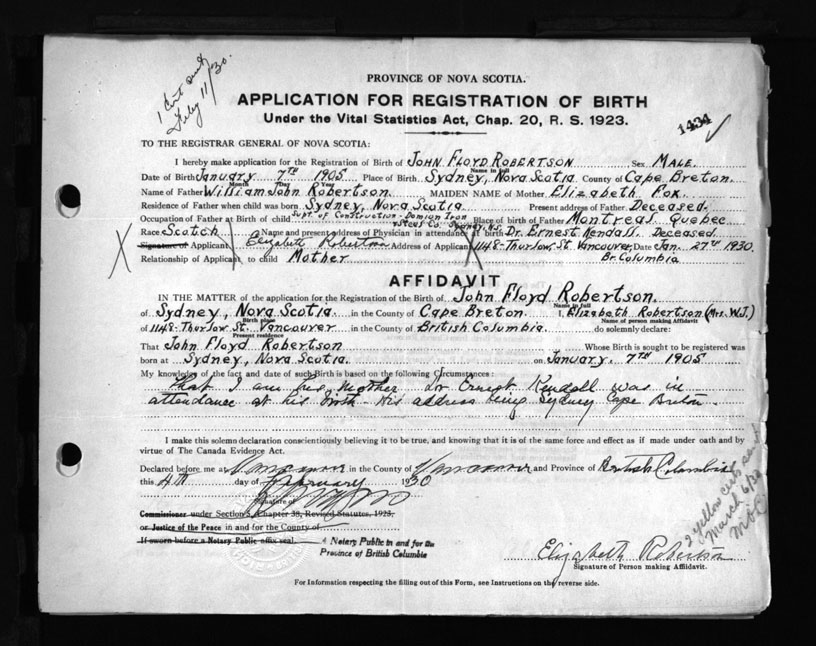 1 Cert sent
July 11/30.
PROVINCE OF NOVA SCOTIA.
APPLICATION FOR REGISTRATION OF BIRTH
Under the Vital Statistics Act, Chap. 20, R. S. 1923.
1434 ✓
TO THE REGISTRAR GENERAL OF NOVA SCOTIA:
I hereby make application for the Registration of Birth of JOHN FLOYD ROBERTSON Sex MALE.
Name in full
Date of Birth January 7TH 1905 Place of Birth Sydney, Nova Scotia County of Cape Breton.
Month Day Year
Name of Father William John Robertson. MAIDEN NAME of Mother Elizabeth Fox.
Residence of Father when child was born Sydney, Nova Scotia Present address of Father Deceased.
Occupation of Father at Birth of child Supt. of Construction - Domion Iron & Steel Co. Sydney, N.S. Place of birth of Father Montreal Quebec
Race Scotch Name and present address of Physician in attendance at birth Dr. Ernest Kendall Deceased
X Signature of Applicant Elizabeth Robertson Address of Applicant 1148-Thurlow, St. Vancouver, Date Jan. 27TH 1930.
Relationship of Applicant to child Mother Br. Columbia
AFFIDAVIT
IN THE MATTER of the application for the Registration of the Birth of John Floyd Robertson.
Name in full
of Sydney, Nova Scotia. in the County of Cape Breton. I, Elizabeth Robertson (Mrs. W.J.)
Birth place Name of person making Affidavit
of 1148-Thurlow St. Vancouver in the County of British Columbia. do solemnly declare:
Present residence
That John Floyd Robertson Whose Birth is sought to be registered was
born at Sydney, Nova Scotia. on January. 7TH 1905
My knowledge of the fact and date of such Birth is based on the following Circumstances:
That I am his Mother Dr Ernest Kendall was in
attendance at his birth. His address being Sydney Cape Breton.
I make this solemn declaration conscientiously believing it to be true, and knowing that it is of the same force and effect as if made under oath and by
virtue of The Canada Evidence Act.
Declared before me at Vancouver in the County of Vancouver and Province of British Columbia
this 4th day of February 1930
Signature of
Commissioner under Section 3, Chapter 38, Revised Statutes, 1923,
or Justice of the Peace in and for the County of
If sworn before a Notary Public affix seal.
A Notary Public in and for the
Province of British Columbia
2 yellow certs sent
March 6/30
Elizabeth Robertson
Signature of Person making Affidavit.
For Information respecting the filling out of this Form, see Instructions on the reverse side.